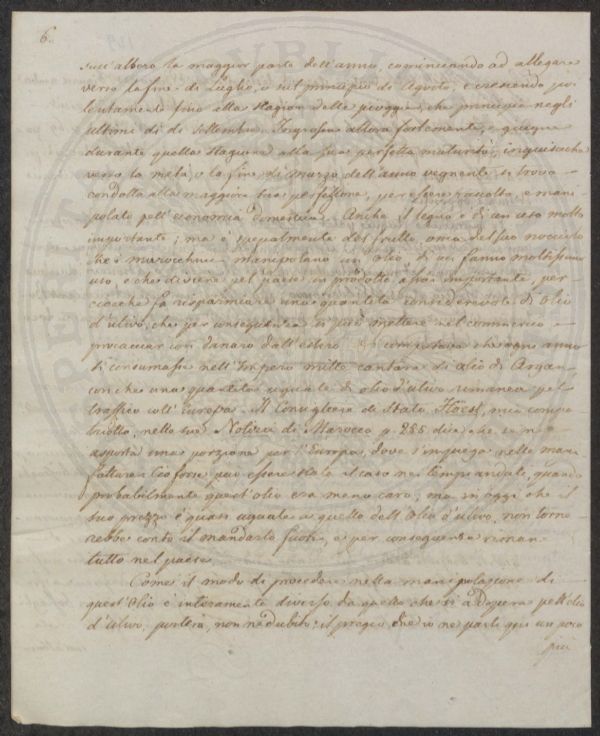 6.
sull'albero la maggior parte dell'anno, cominciando ad allegare
verso la fine di Luglio, o sul principio di Agosto, e crescendo poi
lentamente fino alla stagion delle piogge, che principia negli
ultimi di di Settembre. Ingrossa allora fortemente, e giugne
durante quella stagione alla sua perfetta maturità, in guisa che
verso la metà, o la fine di Marzo dell'anno vegnente si trova
condotta alla maggiore sua perfezione, per essere raccolta, e mani-
polata pell'economia domestica. Anche il legno è di un uso molto
importante; ma è specialmente del frutto, ossia del suo nocciolo
che i marocchini manipolano un olio, di cui fanno moltissimo
uso, e che diviene pel paese un prodotto assai importante, per-
ciocche fa risparmiare una quantità considerevole di olio
d'ulivo, che per conseguenza si può mettere nel commercio e
procacciar con danaro dall'estero. Si che ogni anno
si consumassi nell'Impero mille cantara di olio di Argan
con che una quantità uguale di olio d'ulivo rimanea pel
traffico coll'Europa. Il Consigliere di Stato Höest, mio compa-
triotto, nelle sue Notizie di Marocco p. 285 dice che se n'è
asporta una porzione per l'Europa, dove s'impiega nelle mani-
fatture. Ciò forse può essere stato il caso ne' tempi andati, quando
probabilmente quest'olio era meno caro, ma in oggi che il
suo prezzo è quasi uguale a quello dell'olio d'ulivo, non torne-
rebbe conto il mandarlo fuori, e per conseguenza riman
tutto nel paese.
Come il modo di procedere nella manipolazione di
quest'olio è interamente diverso da quello che si adopera pell'olio
d'ulivo, porterà, non ne dubito, il pregio che io ne parli qui un poco
più